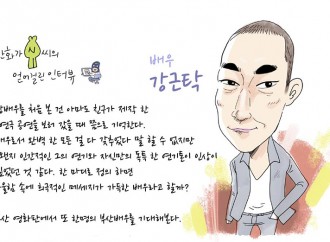 만화가 씨의
얼어걸린 인터뷰
배우
강근탁
배우를 처음 본 건 아마도 친구가 제작 한
공연을 보러 갔을 때 쯤으로 기억한다.
배우로서 완벽 한 모든 걸 다 갖추었다 말 할 수 없지만
인간적인 그의 연기와 자신만의 독특 한 연기톤이 인상이
것 같다. 한 마디로 정의 하면
속에 희극적인 메세지가 가득한 배우라고 할까?
영화판에서 또 한명의 부산배우를 기대해본다.